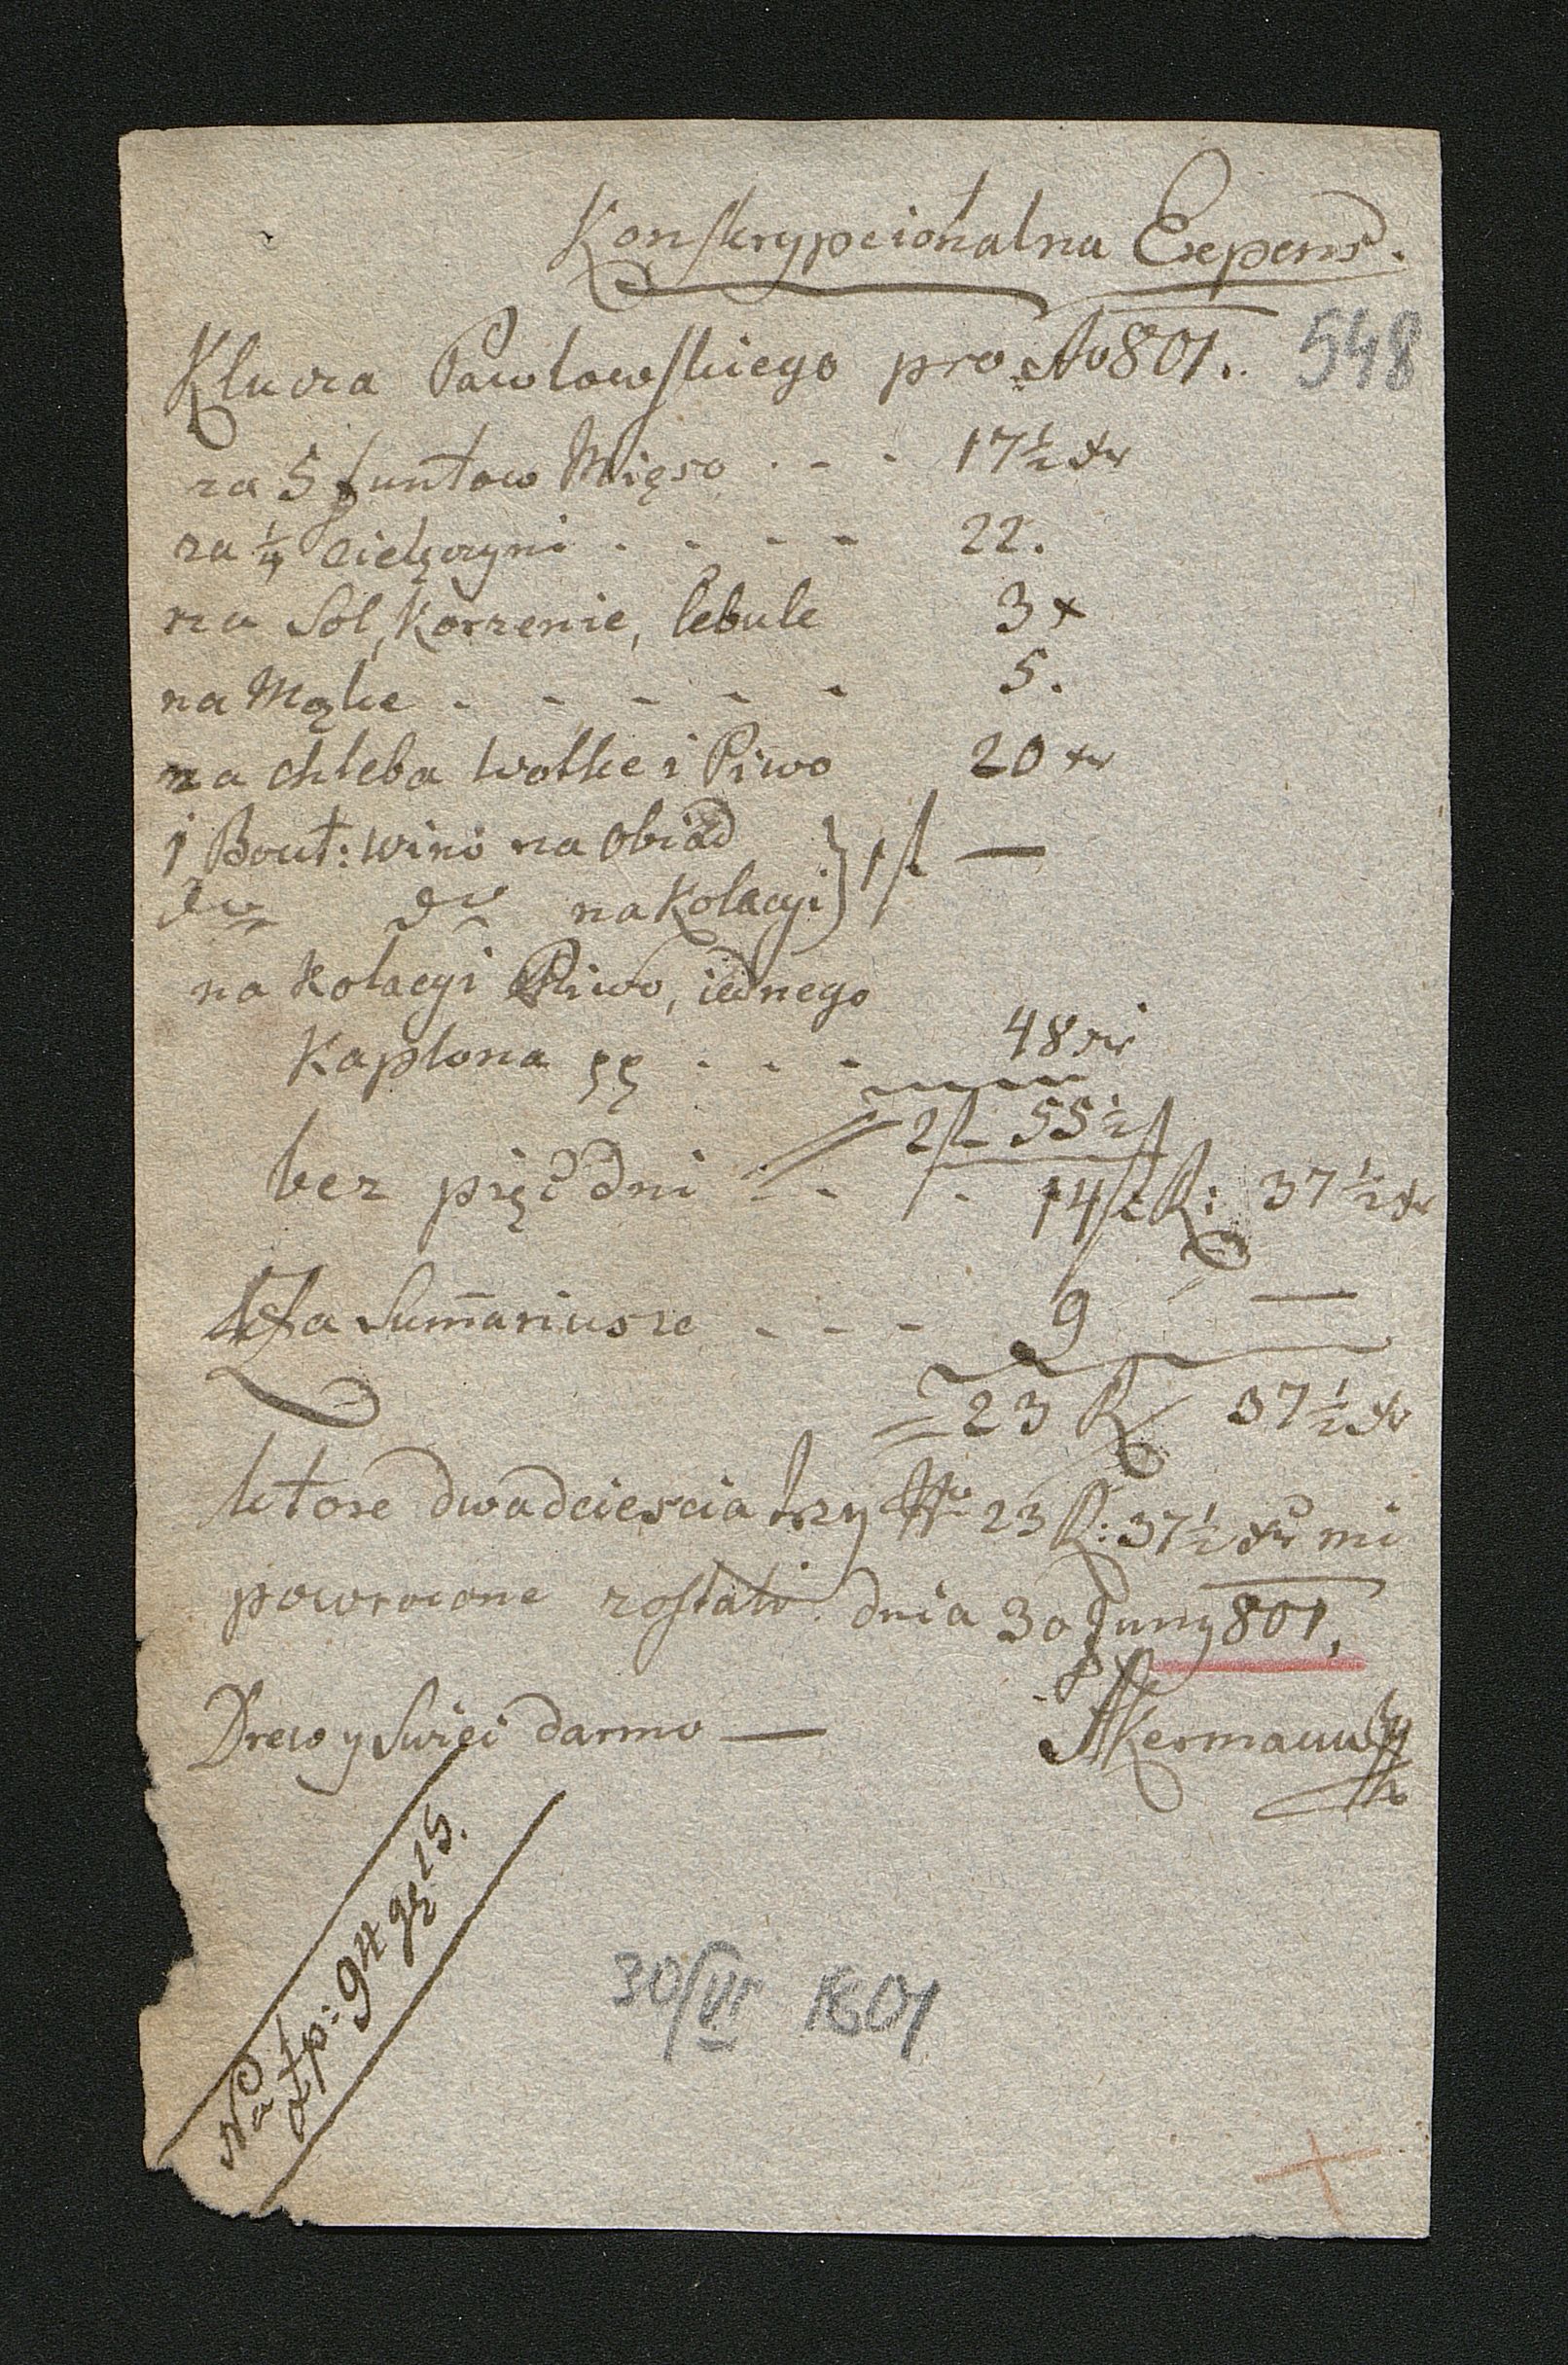 Konskrypcionalna Expens.
Klucza Pawlowskiego pro Ao 801.
548
za 5 funtow Mięso . - - 17½ xr
za ¼ Cielęczyni - - - - 22.
na Sól, Korzenie, lebule 3 x
na Mąke - - - - - 5.
na chleba wotke i Piwo 20 xr
1 Bout: wino na Obiad
do do na Kolacyi } 1 f —
na Kolacyi Piwo, iednego
Kaplona - - - 48 xr
2 f 55½
bez pięć dni - - - 14 f R: 37½ xr
Za Sumariusze - - - 9 —
23 R 37½ xr
ktore dwadciescia trzy 23 R: 37½ xr mi
powrocone zostało dnia 30 Juny 801.
Drewo y Swięci darmo —
Akermann
Na
złp: 94 gr 15.
30/VI 1801